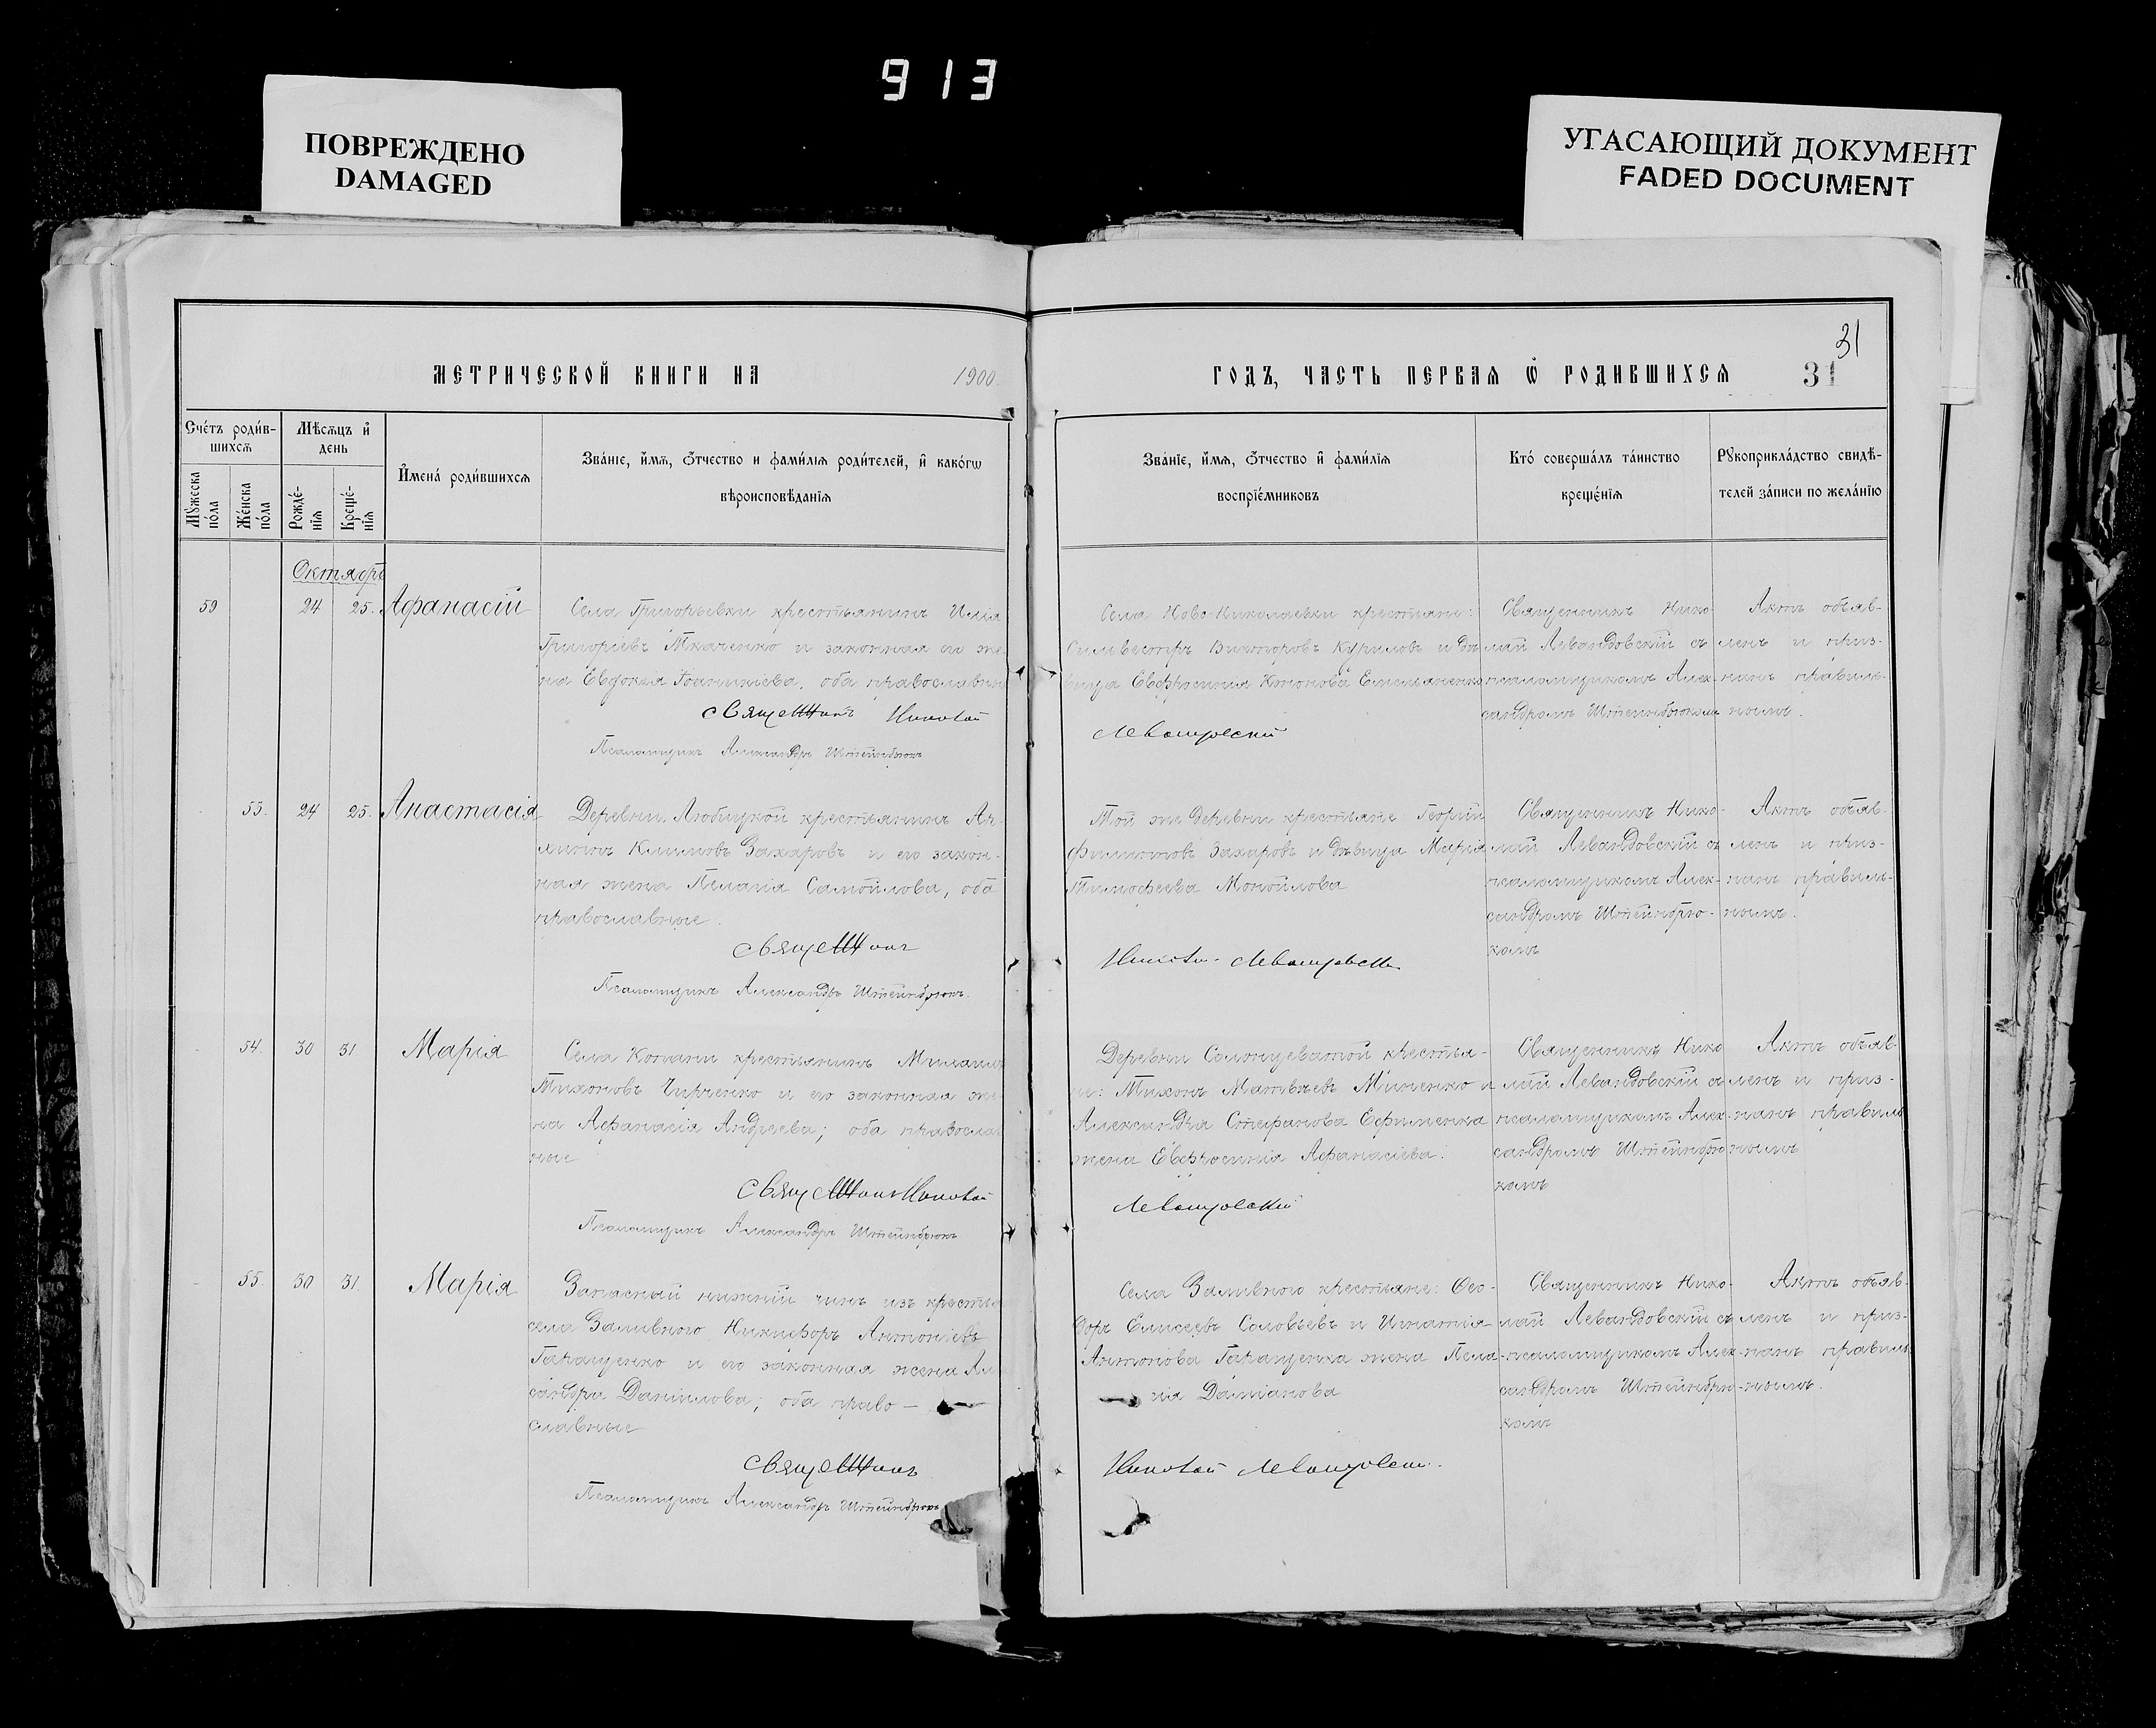 913
ПОВРЕЖДЕНО
DAMAGED
УГАСАЮЩИЙ ДОКУМЕНТ
FADED DOCUMENT
31
МЕТРИЧЕСКОЙ КНИГИ НА 1900
ГОДЪ, ЧАСТЬ ПЕРВАѦ Ѡ РОДИВШИХСѦ 31
Сче́тъ роди́в-
шихсѧ
Мѣ́сѧцъ и҆
день
Мꙋ́жеска
по́ла
Же́нска
по́ла
Рожде́-
нїѧ
Креще́-
нїѧ
И҆мена̀ роди́вшихсѧ
Зва́нїе, и҆́мѧ, ѻ҆́тчество и фами́лїѧ роди́телей, и҆ како́гѡ
вѣроисповѣ́данїѧ
Зва́нїе, и҆́мѧ, ѻ҆́тчество и҆ фами́лїѧ
воспрїе́мниковъ
Кто̀ соверша́лъ та́инство
креще́нїѧ
Рꙋкоприкла́дство свидѣ́-
телей за́писи по жела́нїю
Октябрь
59 24 25. Афанасій
Села Григорьевки крестьянинъ Илія
Григоріевъ Ткаченко и законная его же
на Евдокія Іоанникіева, оба православны
Священникъ Николай
Псаломщикъ Александръ Штейнбрюкъ
Села Ново-Николаевки крестьяне:
Сильвестръ Викторовъ Куриловъ и дѣ
вица Евфросинія Емельяненко
Левандовскій
Священникъ Нико-
лай Левандовскій съ
псаломщикомъ Алек-
сандромъ Штейнбрюкомъ
Актъ объяв-
ленъ и приз-
нанъ правиль-
нымъ.
53. 24 25. Анастасія
Деревни Любицкой крестьянинъ
Климовъ Захаровъ и его закон-
ная жена Пелагія Самойлова, оба
православные.
Священникъ
Псаломщикъ Александръ Штейнбрюкъ.
Той же деревни крестьяне: Георгій
Филипповъ Захаровъ и дѣвица Марія
Тимофеева
Николай Левандовскій
Священникъ Нико-
лай Левандовскій съ
псаломщикомъ Алек-
сандромъ Штейнбрю-
комъ
Актъ объяв-
ленъ и приз-
нанъ правиль-
нымъ.
54. 30 31 Марія
Села Копани крестьянинъ Михаилъ
Тихоновъ и его законная же
на Афанасія Андреева; оба правосла
ные
Священникъ Николай
Псаломщикъ Александръ Штейнбрюкъ
Деревни Солонцеватой крестья-
не: Тихонъ Матвѣевъ Миненко и
Александра Стефанова Ефименка
жена Евфросинія Афанасіева.
Левандовскій
Священникъ Нико
лай Левандовскій съ
псаломщикомъ Алек-
сандромъ Штейнбрю
комъ
Актъ объяв-
ленъ и приз-
нанъ правиль
нымъ
55. 30 31. Марія
Запасный нижній чинъ изъ крестья
села Заливного Никифоръ Антоніевъ
Гаращенко и его законная жена Ал
сандра Даніилова; оба право-
славные
Священникъ
Псаломщикъ Александръ Штейнбрюкъ
Села Заливного крестьяне: Фео-
доръ Елисеевъ Соловьевъ и Игнатія
Антонова Гаращенка жена Пела-
гія Даміанова
Николай Левандовскій
Священникъ Нико-
лай Левандовскій съ
псаломщикомъ Алек-
сандромъ Штейнбрю-
комъ
Актъ объяв-
ленъ и приз-
нанъ правиль
нымъ.